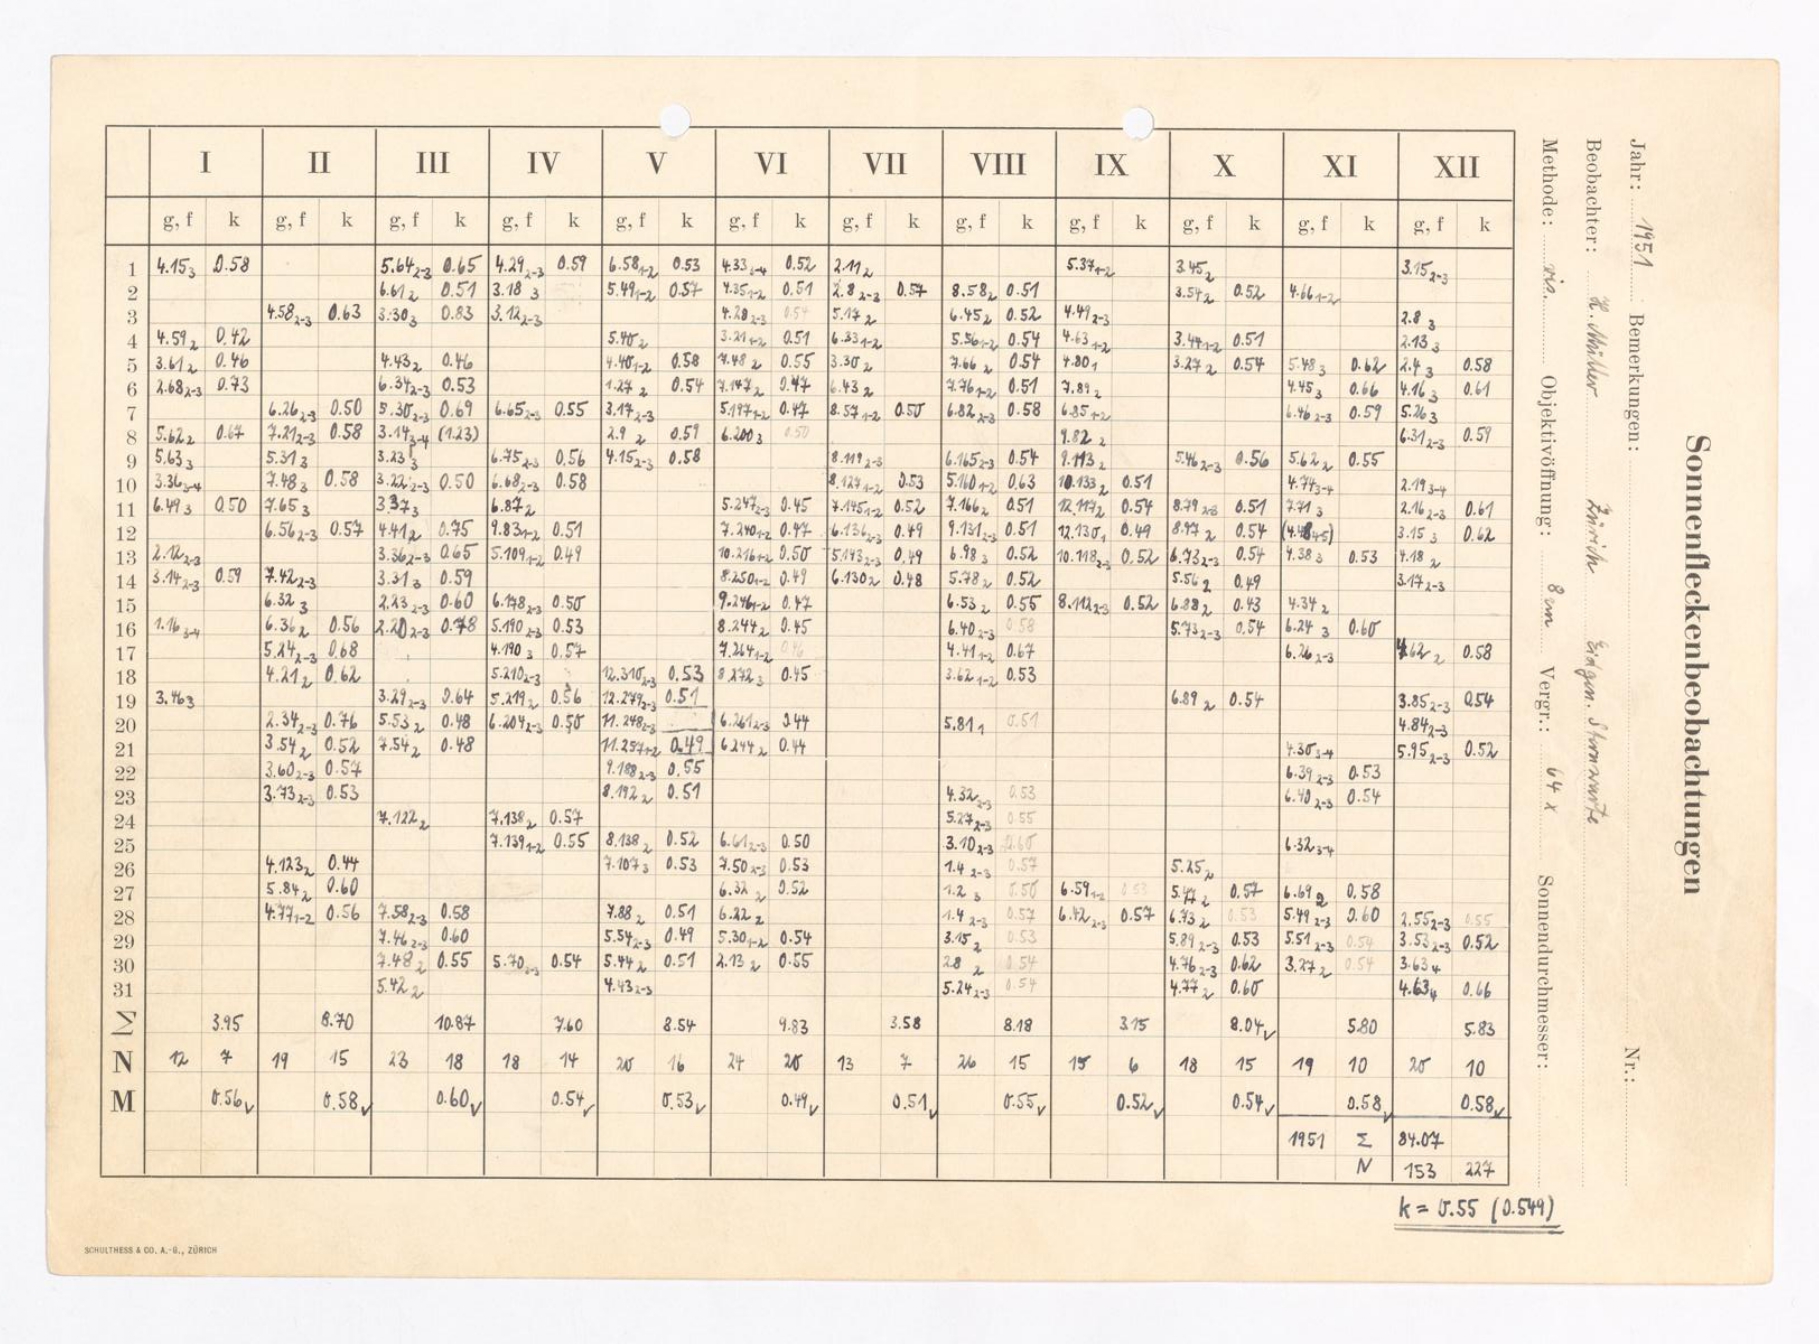 Sonnenfleckenbeobachtungen
Jahr: 1951 Bemerkungen: Nr.:
Beobachter: H. Müller Zürich Eidgen. Sternwarte
Methode: vis. Objektivöffnung: 8 cm Vergr.: 64 x Sonnendurchmesser:
I II III IV V VI VII VIII IX X XI XII
g, f k g, f k g, f k g, f k g, f k g, f k g, f k g, f k g, f k g, f k g, f k g, f k
1 4.15 3 0.58 5.64 2-3 0.65 4.29 2-3 0.59 6.58 1-2 0.53 4.33 3-4 0.52 2.11 2 5.37 1-2 3.45 2 3.15 2-3
2 6.61 2 0.51 3.18 3 5.49 1-2 0.57 4.35 1-2 0.51 2.8 2-3 0.57 8.58 2 0.51 3.54 2 0.52 4.66 1-2
3 4.58 2-3 0.63 3.30 3 0.83 3.12 2-3 4.28 2-3 0.54 5.17 2 6.45 2 0.52 4.49 2-3 2.8 3
4 4.59 2 0.42 5.40 2 3.21 1-2 0.51 6.33 1-2 5.56 1-2 0.54 4.63 1-2 3.44 1-2 0.51 2.13 3
5 3.61 2 0.46 4.43 2 0.46 4.40 1-2 0.58 7.48 2 0.55 3.30 2 7.66 2 0.54 4.80 1 3.27 2 0.54 5.48 3 0.62 2.4 3 0.58
6 2.68 2-3 0.73 6.34 2-3 0.53 1.27 2 0.54 7.147 2 0.47 6.43 2 7.76 1-2 0.51 7.89 2 4.45 3 0.66 4.16 3 0.61
7 6.26 2-3 0.50 5.30 2-3 0.69 6.65 2-3 0.55 3.17 2-3 5.197 1-2 0.47 8.57 1-2 0.50 6.82 2-3 0.58 6.85 1-2 6.46 2-3 0.59 5.26 3
8 5.62 2 0.67 7.21 2-3 0.58 3.14 3-4 (1.23) 2.9 2 0.59 6.200 3 0.50 9.82 2 6.31 2-3 0.59
9 5.63 3 5.31 3 3.23 3 6.75 2-3 0.56 4.15 2-3 0.58 8.119 2-3 6.165 2-3 0.54 9.113 2 5.46 2-3 0.56 5.62 2 0.55
10 3.36 3-4 7.48 3 0.58 3.22 2-3 0.50 6.68 2-3 0.58 8.127 1-2 0.53 5.160 1-2 0.63 10.133 2 0.51 4.74 3-4 2.19 3-4
11 6.49 3 0.50 7.65 3 3.37 3 6.87 2 5.247 2-3 0.45 7.145 1-2 0.52 7.166 2 0.51 12.117 2 0.54 8.79 2-3 0.51 7.71 3 2.16 2-3 0.61
12 6.56 2-3 0.57 4.41 2 0.75 9.83 1-2 0.51 7.240 1-2 0.47 6.136 2-3 0.49 9.131 2-3 0.51 12.130 1 0.49 8.97 2 0.54 3.15 3 0.62
13 2.12 2-3 3.36 2-3 0.65 5.109 1-2 0.49 10.216 1-2 0.50 5.143 2-3 0.49 6.98 3 0.52 10.118 2-3 0.52 6.73 2-3 0.54 4.38 3 0.53 4.18 2
14 3.14 2-3 0.59 7.42 2-3 3.31 3 0.59 8.250 1-2 0.49 6.130 2 0.48 5.78 2 0.52 5.56 2 0.49 3.17 2-3
15 6.32 3 2.23 2-3 0.60 6.178 2-3 0.50 9.246 1-2 0.47 6.53 2 0.55 8.112 2-3 0.52 6.88 2 0.43 4.34 2
16 1.16 3-4 6.36 2 0.56 2.20 2-3 0.78 5.190 2-3 0.53 8.244 2 0.45 6.40 2-3 0.58 5.73 2-3 0.54 6.24 3 0.60
17 5.24 2-3 0.68 4.190 3 0.57 7.264 1-2 0.46 4.41 1-2 0.67 6.26 2-3 4.62 2 0.58
18 4.21 2 0.62 5.210 2-3 12.310 2-3 0.53 8.272 3 0.45 3.62 1-2 0.53
19 3.46 3 3.29 2-3 0.64 5.219 2 0.56 12.279 2-3 0.51 6.89 2 0.54 3.85 2-3 0.54
20 2.34 2-3 0.76 5.53 2 0.48 6.204 2-3 0.50 11.248 2-3 6.261 2-3 0.44 5.81 1 0.51 4.84 2-3
21 3.54 2 0.52 7.54 2 0.48 11.257 1-2 0.49 6.244 2 0.44 4.30 3-4 5.95 2-3 0.52
22 3.60 2-3 0.57 9.188 2-3 0.55 6.39 2-3 0.53
23 3.73 2-3 0.53 8.192 2 0.51 4.32 2-3 0.53 6.40 2-3 0.54
24 7.122 2 7.138 2 0.57 5.27 2-3 0.55
25 7.139 1-2 0.55 8.138 2 0.52 6.61 2-3 0.50 3.10 2-3 0.60 6.32 3-4
26 4.123 2 0.44 7.107 3 0.53 7.50 2-3 0.53 1.4 2-3 0.57 5.25 2
27 5.84 2 0.60 6.32 2 0.52 1.2 3 0.50 6.59 1-2 0.53 0.57 6.69 2 0.58
28 4.77 1-2 0.56 7.58 2-3 0.58 7.88 2 0.51 6.22 2 1.4 2-3 0.57 6.42 2-3 0.57 6.73 2 0.53 5.49 2-3 0.60 2.55 2-3 0.55
29 7.46 2-3 0.60 5.54 2-3 0.49 5.30 1-2 0.54 3.15 2 0.53 5.89 2-3 0.53 5.51 2-3 0.54 3.53 2-3 0.52
30 7.48 2 0.55 5.70 2-3 0.54 5.44 2 0.51 2.13 2 0.55 2.8 2 0.54 4.76 2-3 0.62 3.27 2 0.54 3.63 4
31 5.42 2 4.43 2-3 5.24 2-3 0.54 4.77 2 0.60 4.63 4 0.66
Σ 3.95 8.70 10.87 7.60 8.54 9.83 3.58 8.18 3.15 8.04✓ 5.80 5.83
N 12 7 19 15 23 18 18 14 20 16 24 20 13 7 26 15 15 6 18 15 19 10 20 10
M 0.56✓ 0.58✓ 0.60✓ 0.54✓ 0.53✓ 0.49✓ 0.51✓ 0.55✓ 0.52✓ 0.54✓ 0.58✓ 0.58✓
1951 Σ 84.07
N 153 227
k = 0.55 (0.549)
SCHULTHESS & CO. A.-G., ZÜRICH